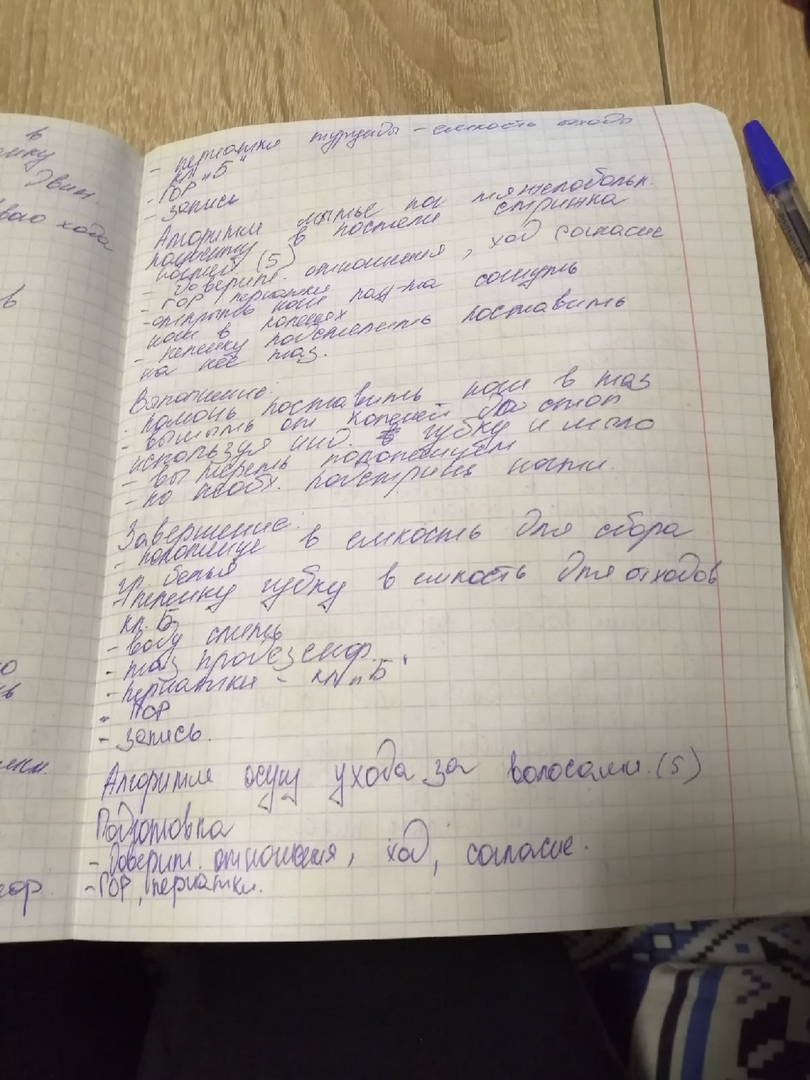 в
Эвин
хода
в
- перчатки турунды - емкость отходы
кл „Б"
- ГОР
- Запись
Алгоритм мытье ног тяжелобольн.
пациенту в постели стрижка
ногтей (5)
- Доверит. отношения, ход согласие
- ГОР перчатки
- открыть ноги пац-та согнуть
ноги в коленях
- пеленку подстелить поставить
на неё таз.
Выполнение:
- помочь поставить ноги в таз
- вымыть от коленей до стоп
используя инд. губку и мыло
- вытереть полотенцем
- по необх. подстричь ногти.
Завершение:
- полотенце в емкость для сбора
гр белья
- пеленку губку в емкость для отходов
кл. Б
- воду слить
- таз продезенфор.
- перчатки - кл „Б"
- ГОР
- Запись.
Алгоритм осущ ухода за волосами. (5)
Подготовка
- Доверит. отношения, ход, согласие.
- ГОР, перчатки.